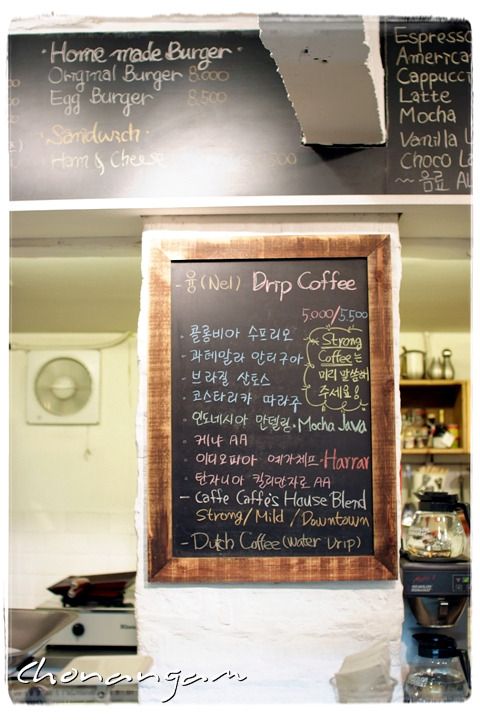 · Home made Burger ·
Original Burger 8,000
Egg Burger 8,500
· Sandwich ·
Ham & Cheese
Espresso
America
Cappucci
Latte
Mocha
Vanilla L
Choco La
~~ 음료
- 융 (Nel) Drip Coffee
5,000/5,500
· 콜롬비아 수프리모
· 과테말라 안티구아
· 브라질 산토스
· 코스타리카 따라주
Strong
Coffee는
미리 말씀해
주세요!
· 인도네시아 만델링 · Mocha Java
· 케냐 AA
· 이디오피아 예가체프 · Harrar
· 탄자니아 킬리만자로 AA
- Caffe Caffe's House Blend
Strong / Mild / Downtown
- Dutch Coffee (Water Drip)
chonangam